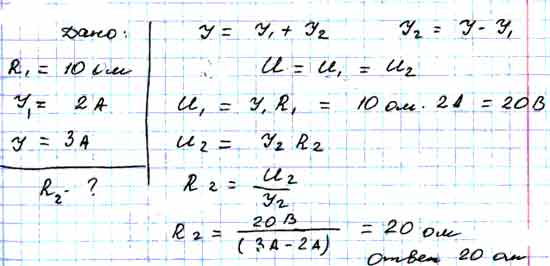 Дано:
R₁ = 10 ом
У₁ = 2А
У = 3А
R₂ - ?
У = У₁ + У₂    У₂ = У - У₁
U = U₁ = U₂
U₁ = У₁R₁ = 10 ом · 2А = 20В
U₂ = У₂ R₂
R₂ = U₂ / У₂
R₂ = 20В / (3А - 2А) = 20 ом
ответ 20 ом